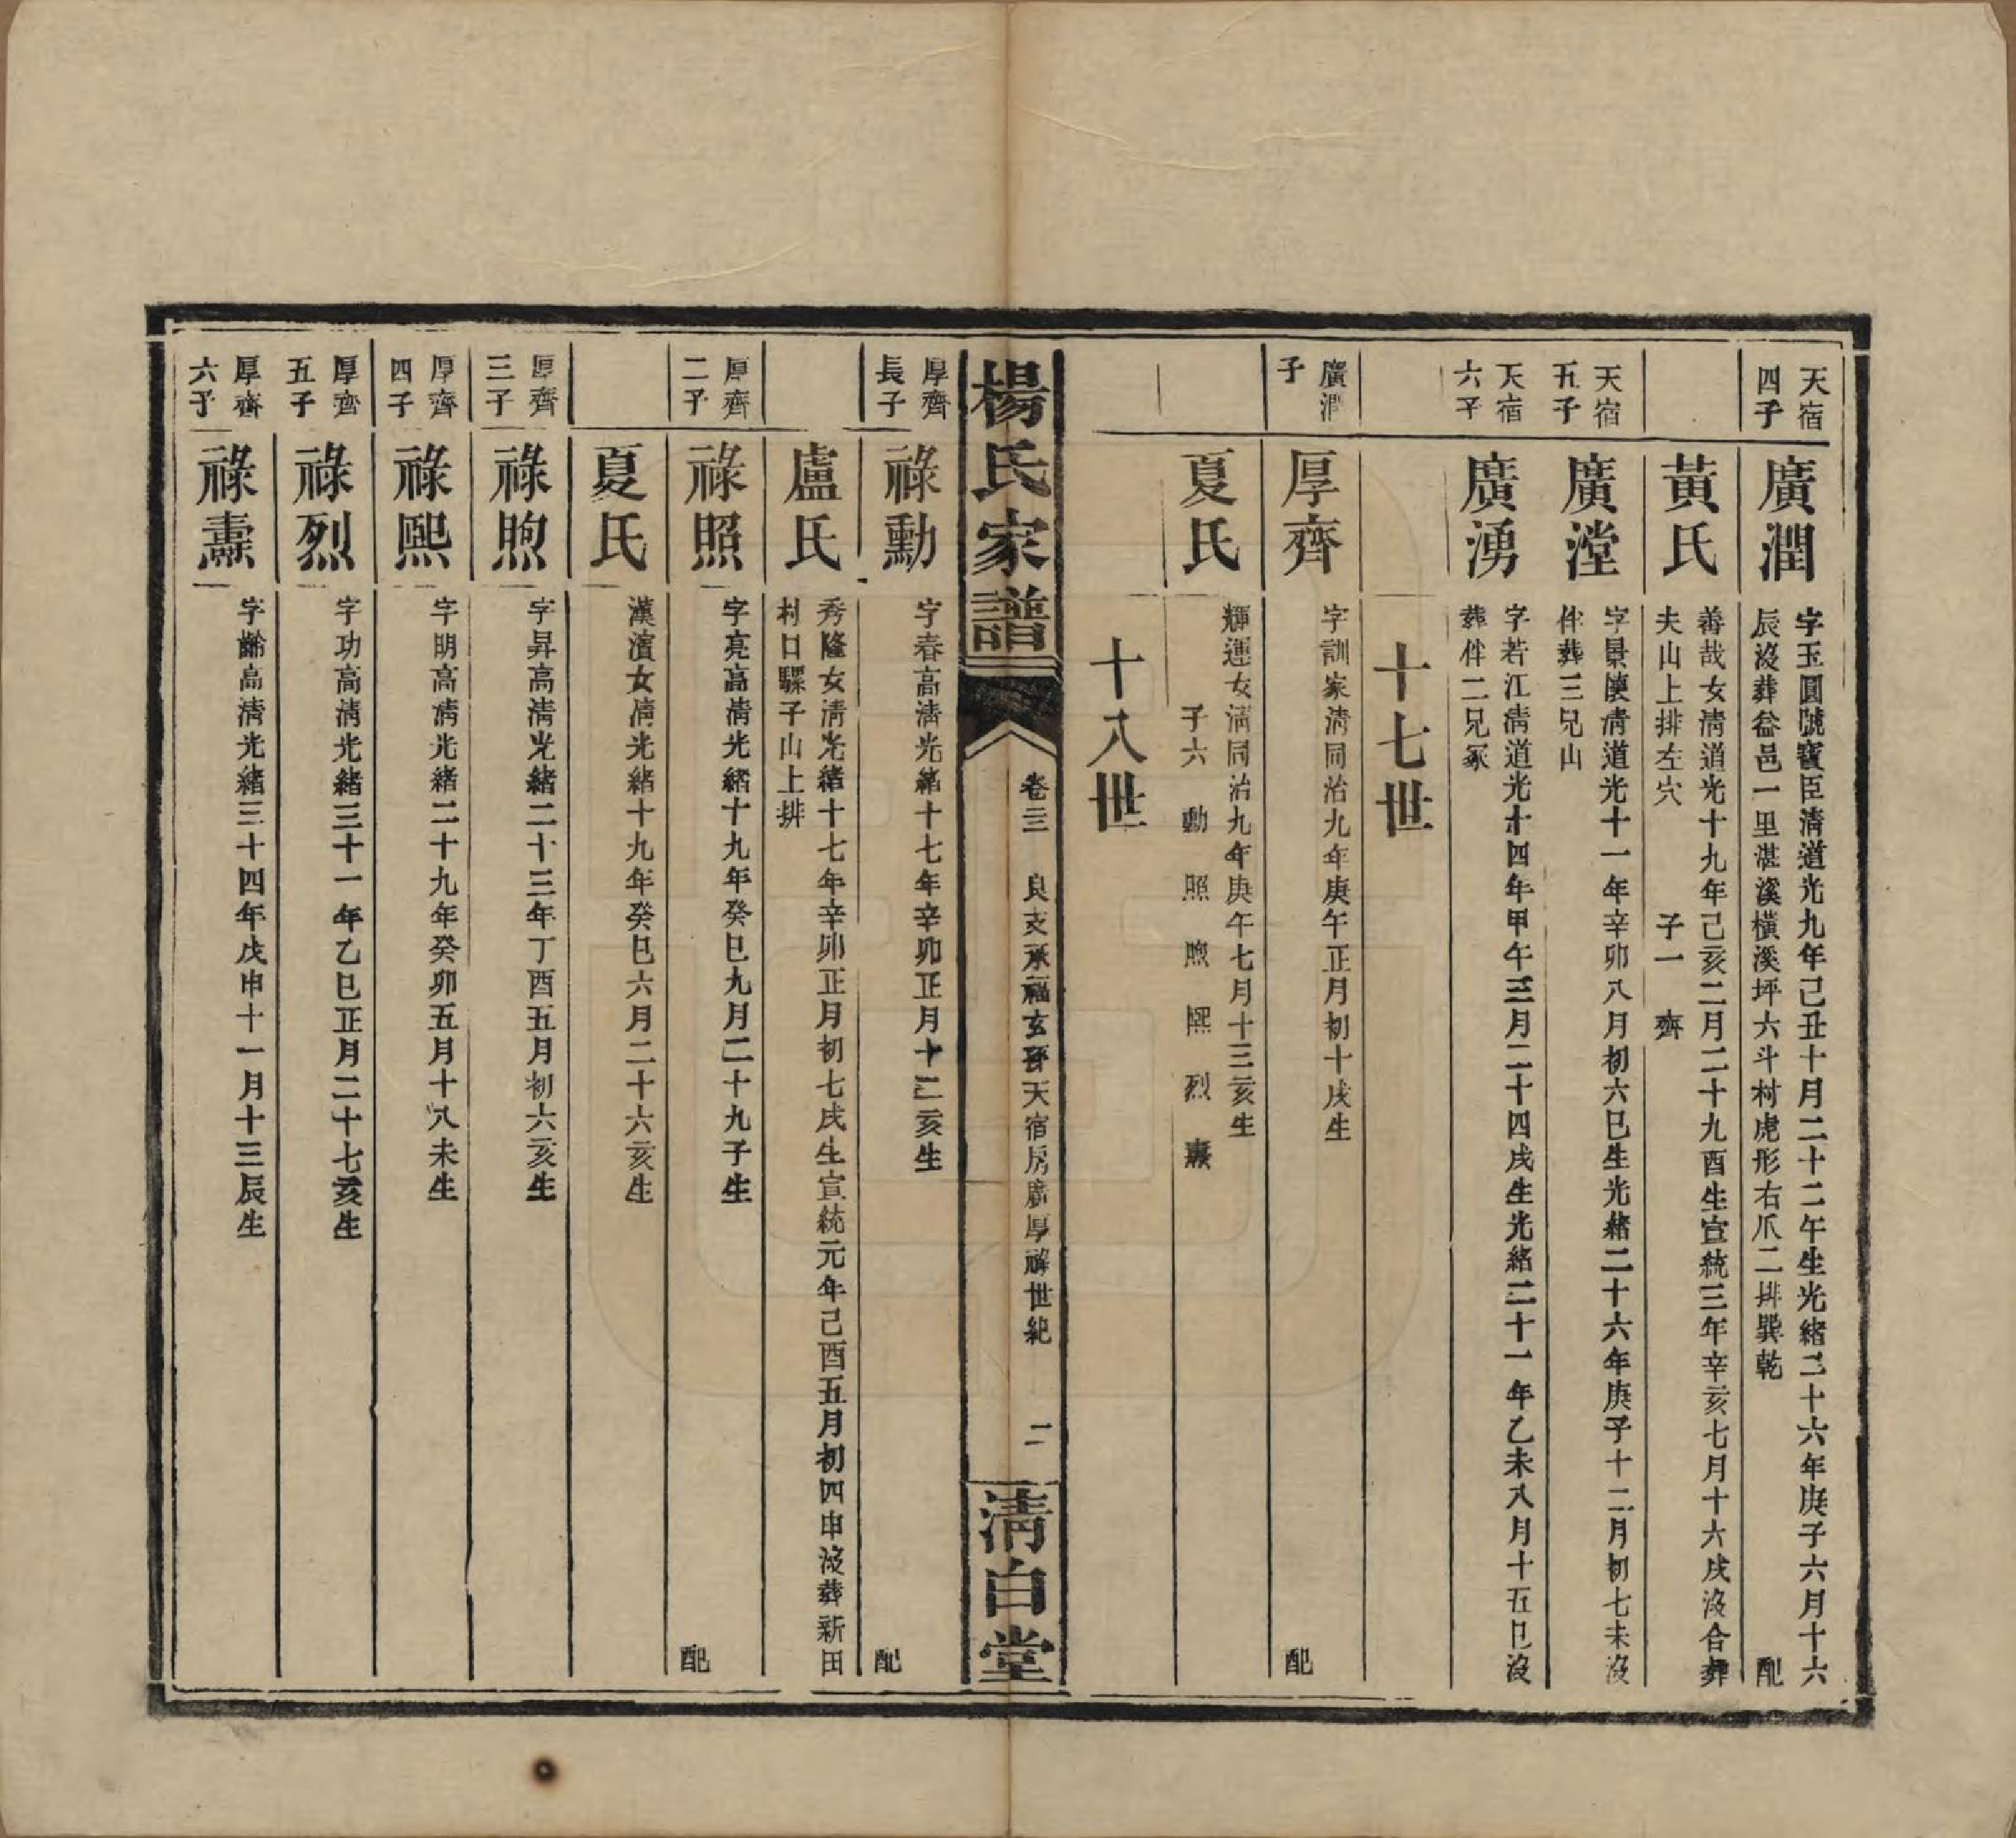 天宿
四子
廣潤
字玉圓號寶臣清道光九年己丑十月二十二午生光緒二十六年庚子六月十六
辰沒葬益邑一里湛溪橫溪坪六斗村虎形右爪二排巽乾 配
黃氏
善哉女清道光十九年己亥二月二十九酉生宣統三年辛亥七月十六戌沒合葬
夫山上排左穴 子一 齊
天宿
五子
廣漟
字景懷清道光十一年辛卯八月初六巳生光緒二十六年庚子十二月初七未沒
伴葬三兄山
天宿
六子
廣湧
字若江清道光十四年甲午三月二十四戌生光緒二十一年乙未八月十五巳沒
葬伴二兄冢
十七世
廣潤
子
厚齊
字訓家清同治九年庚午正月初十戌生
配
夏氏
輝運女清同治九年庚午七月十三亥生
子六 勳 照 煦 熙 烈 燾
十八世
楊氏家譜
卷三 良支承福玄孫天宿房廣厚祿世紀 二
清白堂
厚齊
長子
祿勳
字春高清光緒十七年辛卯正月十二亥生
配
盧氏
秀隆女清光緒十七年辛卯正月初七戌生宣統元年己酉五月初四申沒葬新田
村口騾子山上排
厚齊
二子
祿照
字亮高清光緒十九年癸巳九月二十九子生
配
夏氏
漢濱女清光緒十九年癸巳六月二十六亥生
厚齊
三子
祿煦
字昇高清光緒二十三年丁酉五月初六亥生
厚齊
四子
祿熙
字明高清光緒二十九年癸卯五月十八未生
厚齊
五子
祿烈
字功高清光緒三十一年乙巳正月二十七亥生
厚齊
六子
祿燾
字齡高清光緒三十四年戊申十一月十三辰生